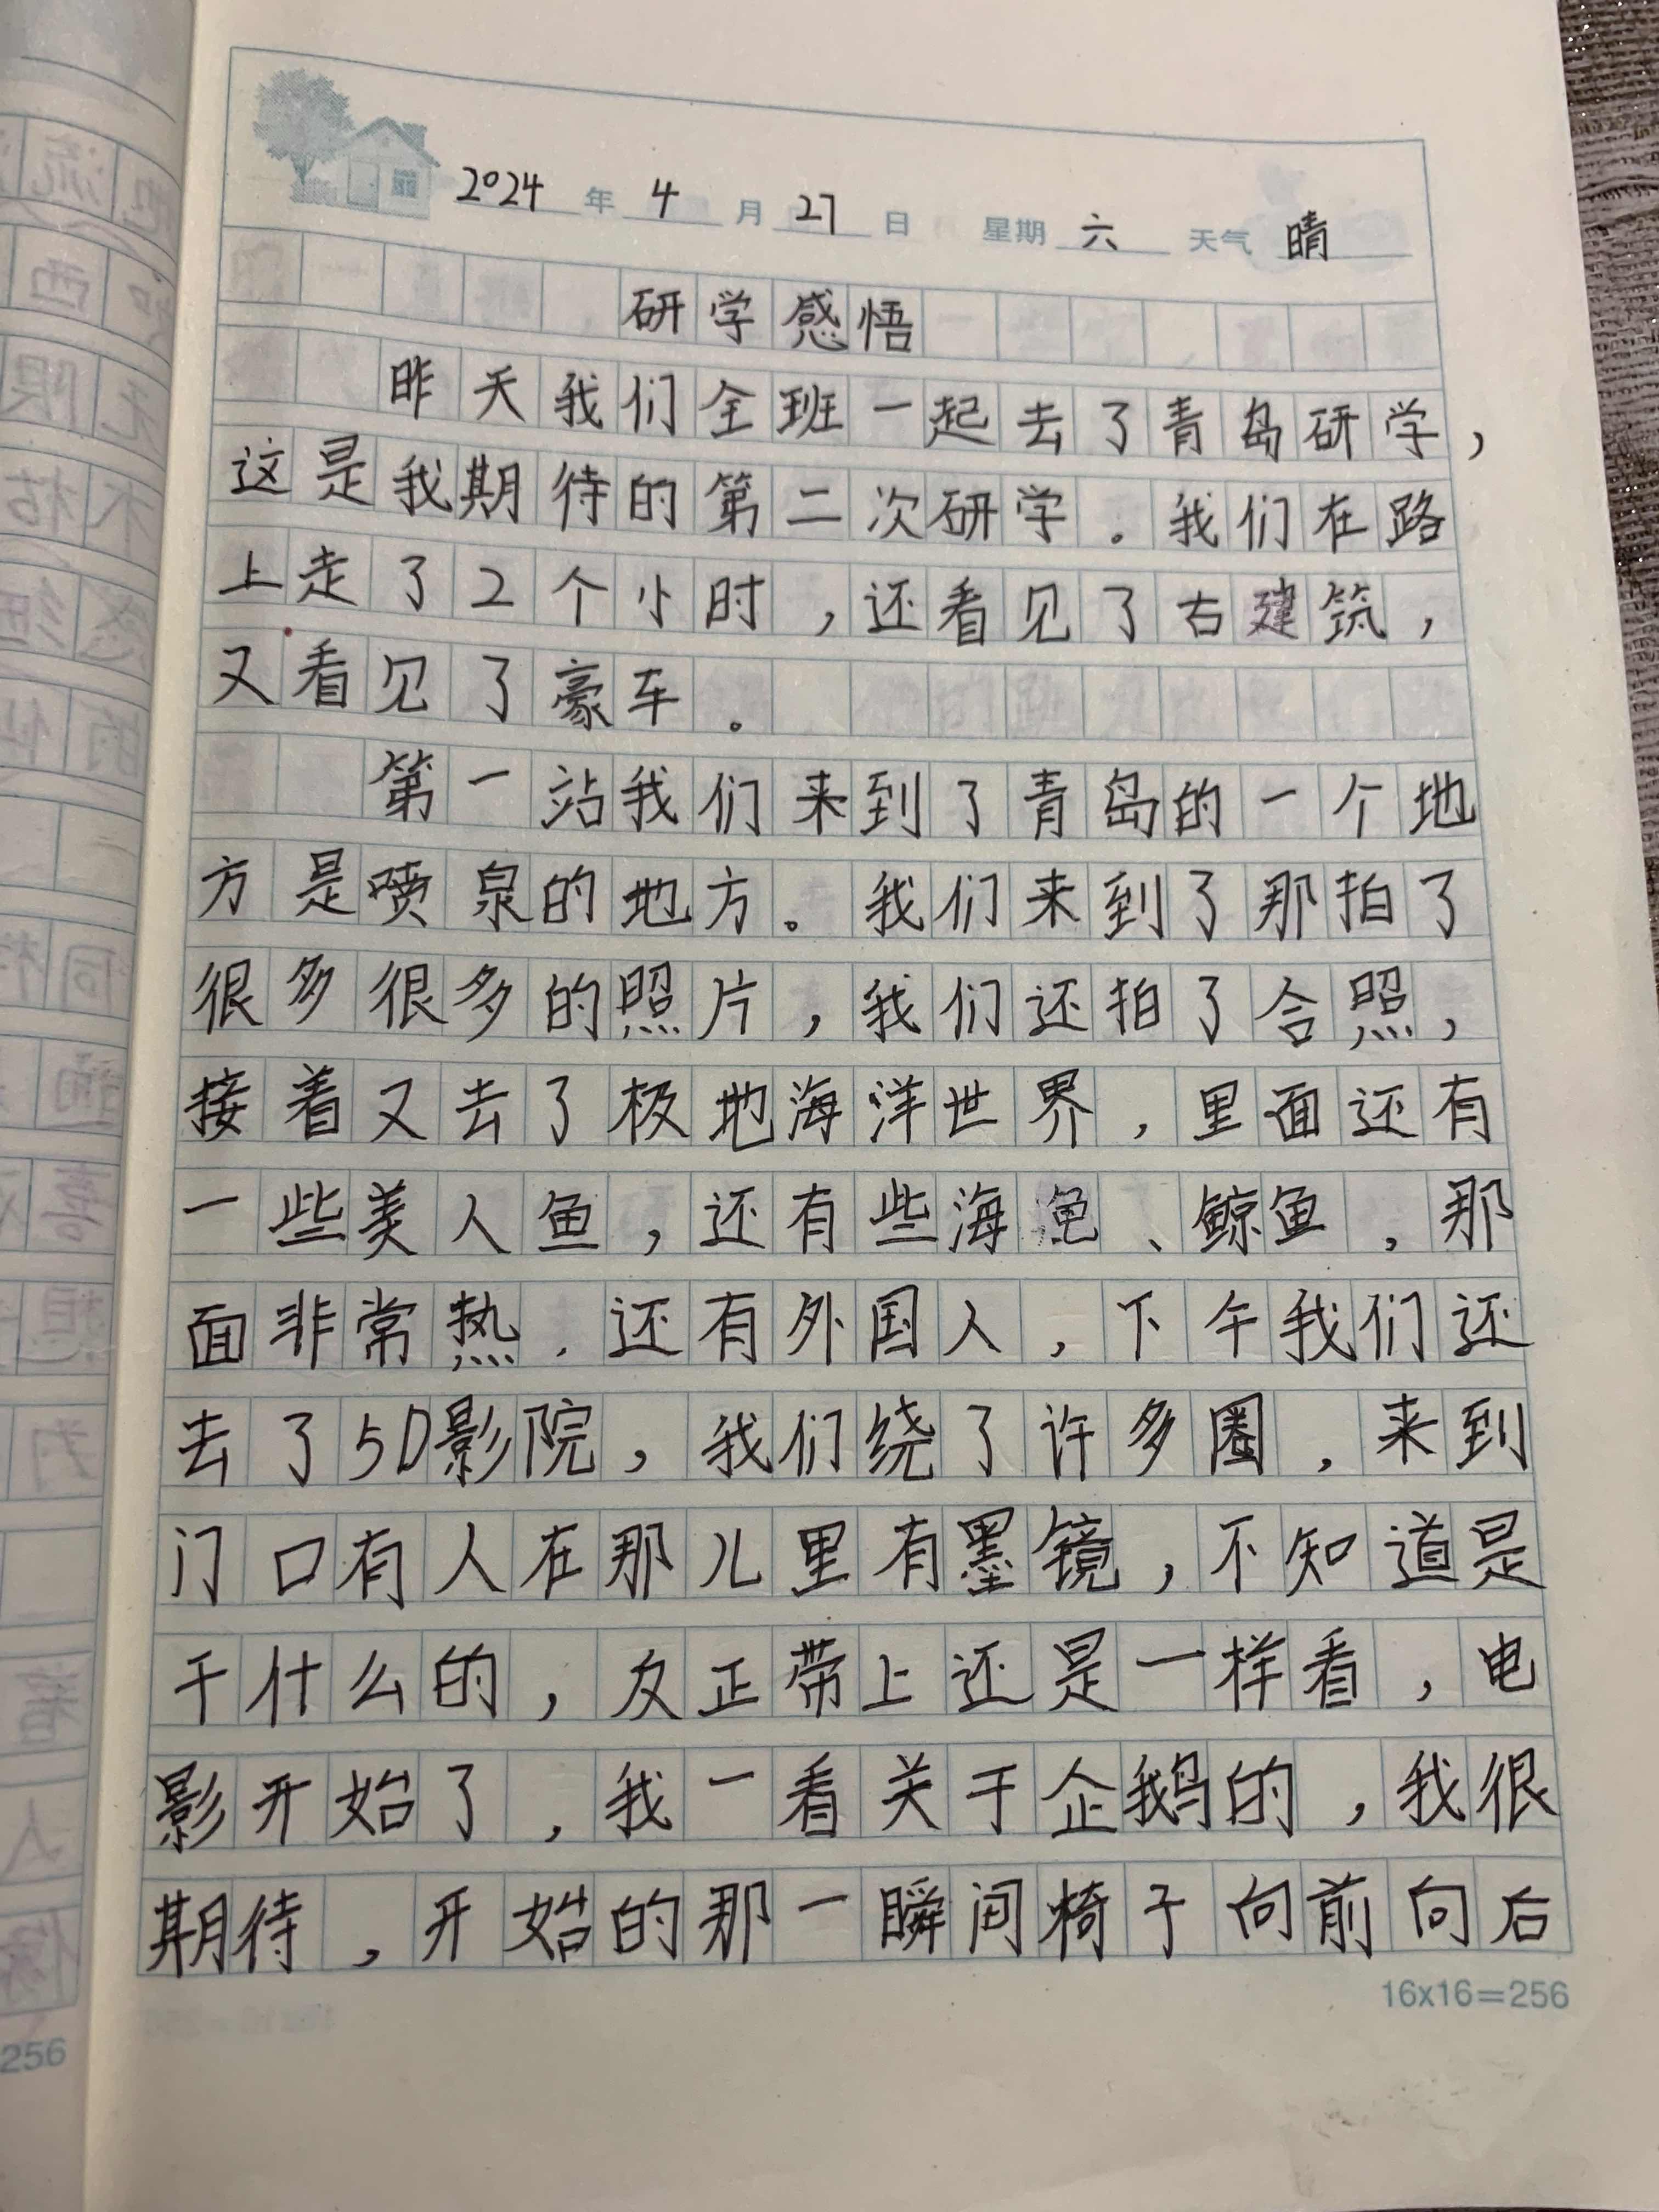 2024年4月27日 星期六 天气晴
研学感悟
昨天我们全班一起去了青岛研学，
这是我期待的第二次研学。我们在路
上走了2个小时，还看见了古建筑，
又看见了豪车。
第一站我们来到了青岛的一个地
方是喷泉的地方。我们来到了那拍了
很多很多的照片，我们还拍了合照，
接着又去了极地海洋世界，里面还有
一些美人鱼，还有些海龟、鲸鱼，那
面非常热．还有外国人，下午我们还
去了5D影院，我们绕了许多圈，来到
门口有人在那儿里有墨镜，不知道是
干什么的，反正带上还是一样看，电
影开始了，我一看关于企鹅的，我很
期待，开始的那一瞬间椅子向前向后
16x16=256
256